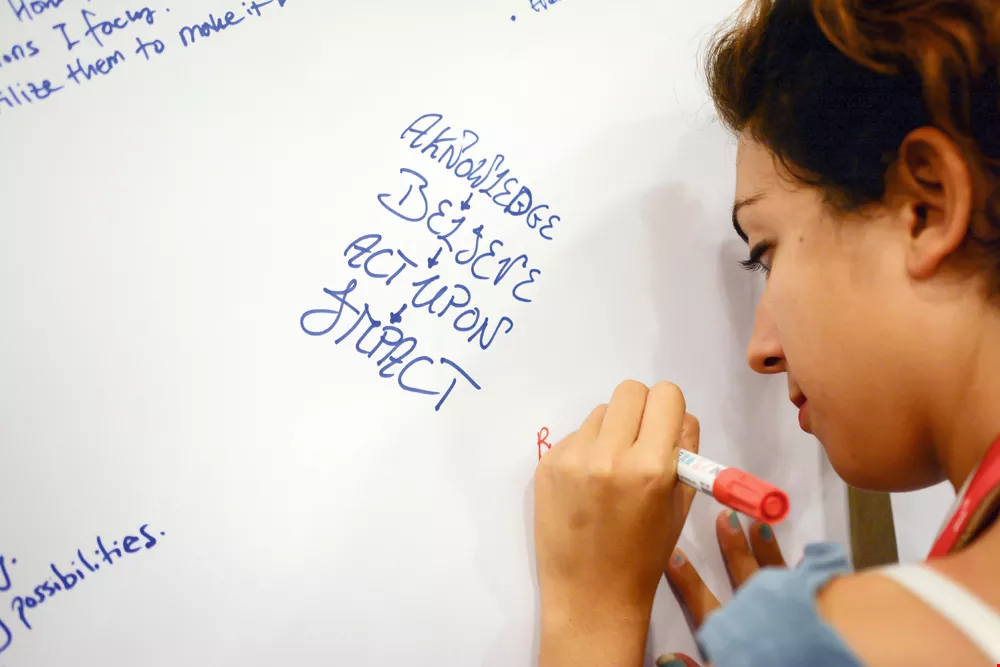 How
ons I focus.
ilize them to make it
AKNOWLEDGE
BELIEVE
ACT UPON
IMPACT
R
possibilities.